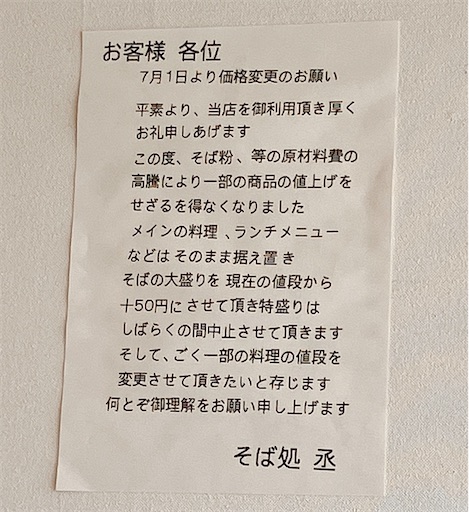 お客様 各位
7月1日より価格変更のお願い
平素より、当店を御利用頂き厚く
お礼申しあげます
この度、そば粉、等の原材料費の
高騰により一部の商品の値上げを
せざるを得なくなりました
メインの料理、ランチメニュー
などは そのまま据え置き
そばの大盛りを 現在の値段から
+50円に させて頂き特盛りは
しばらくの間中止させて頂きます
そして、ごく一部の料理の値段を
変更させて頂きたいと存じます
何とぞ御理解をお願い申し上げます
そば処 丞